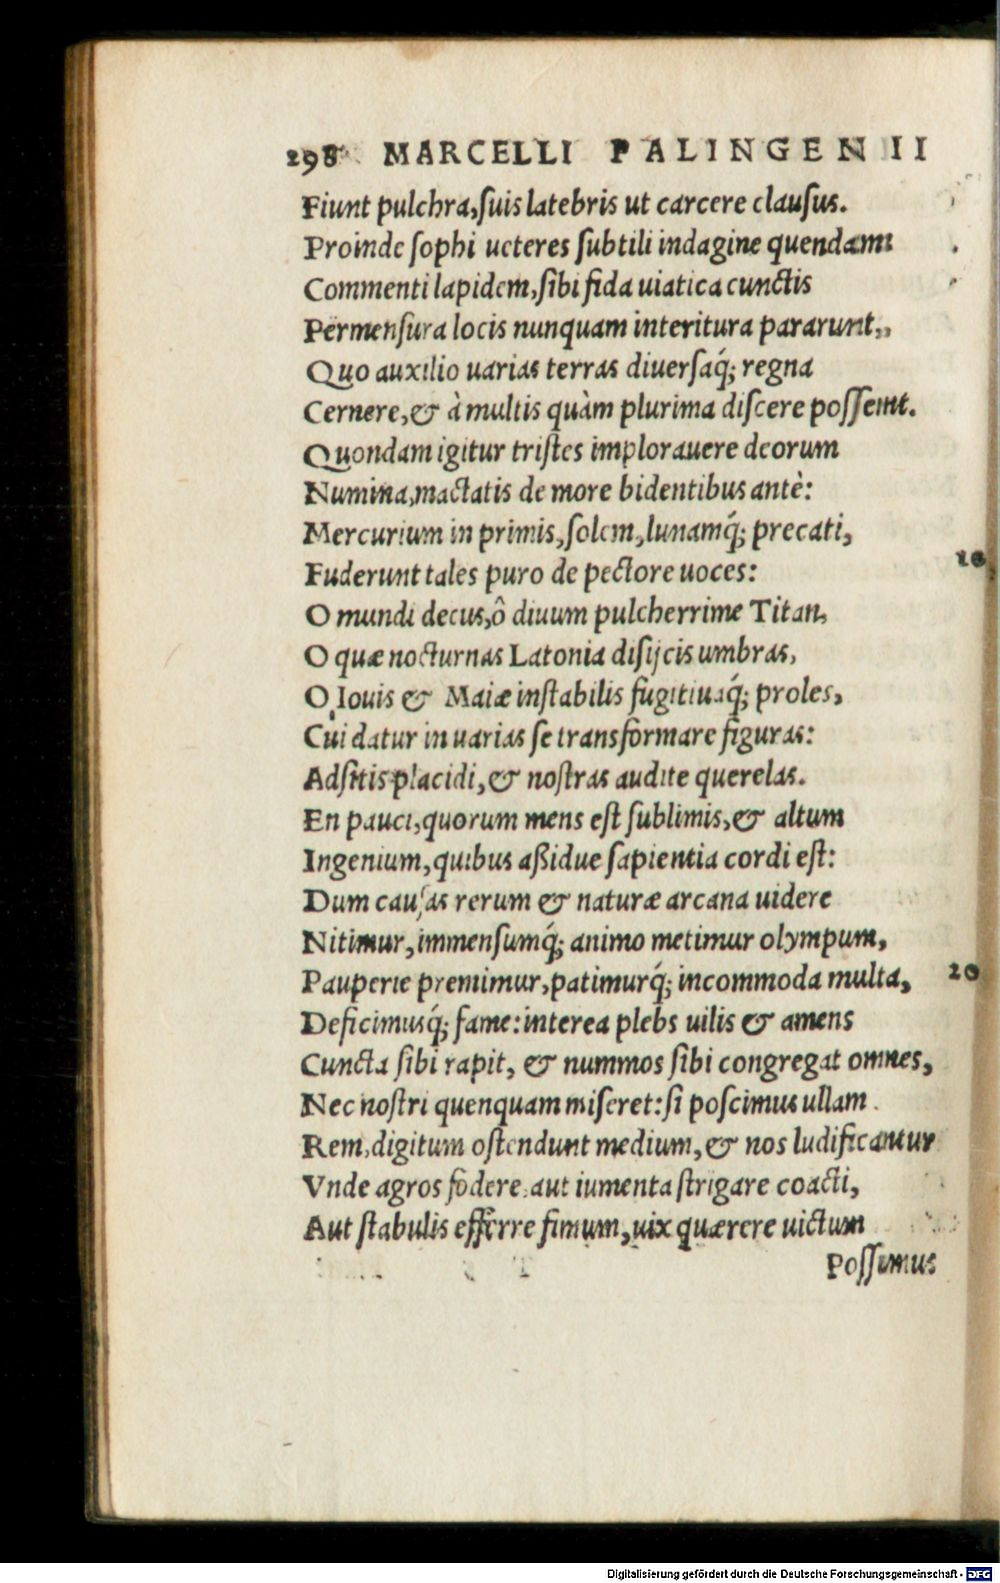 298 MARCELLI PALINGENII
Fiunt pulchra,ſuis latebris ut carcere clauſus.
Proinde ſophi ueteres ſubtili indagine quendam
Commenti lapidem,ſibi fida uiatica cunctis
Permenſura locis nunquam interitura pararunt,
Quo auxilio uarias terras diuerſaq́; regna
Cernere,& à multis quàm plurima diſcere poſſent.
Quondam igitur triſtes implorauere deorum
Numina,mactatis de more bidentibus antè:
Mercurium in primis,ſolem,lunamq́; precati,
Fuderunt tales puro de pectore uoces: 10
O mundi decus,ô diuum pulcherrime Titan,
O quæ nocturnas Latonia diſijcis umbras,
O Iouis & Maiæ inſtabilis fugitiuaq́; proles,
Cui datur in uarias ſe transformare figuras:
Adſitis placidi,& noſtras audite querelas.
En pauci,quorum mens eſt ſublimis,& altum
Ingenium,quibus aßidue ſapientia cordi eſt:
Dum cauſas rerum & naturæ arcana uidere
Nitimur,immenſumq́; animo metimur olympum,
Pauperie premimur,patimurq́; incommoda multa, 20
Deficimusq́; fame:interea plebs uilis & amens
Cuncta ſibi rapit, & nummos ſibi congregat omnes,
Nec noſtri quenquam miſeret:ſi poſcimus ullam
Rem,digitum oſtendunt medium,& nos ludificantur
Vnde agros fodere,aut iumenta ſtrigare coacti,
Aut ſtabulis efferre fimum,uix quærere uictum
Poſſimus
Digitalisierung gefördert durch die Deutsche Forschungsgemeinschaft - DFG